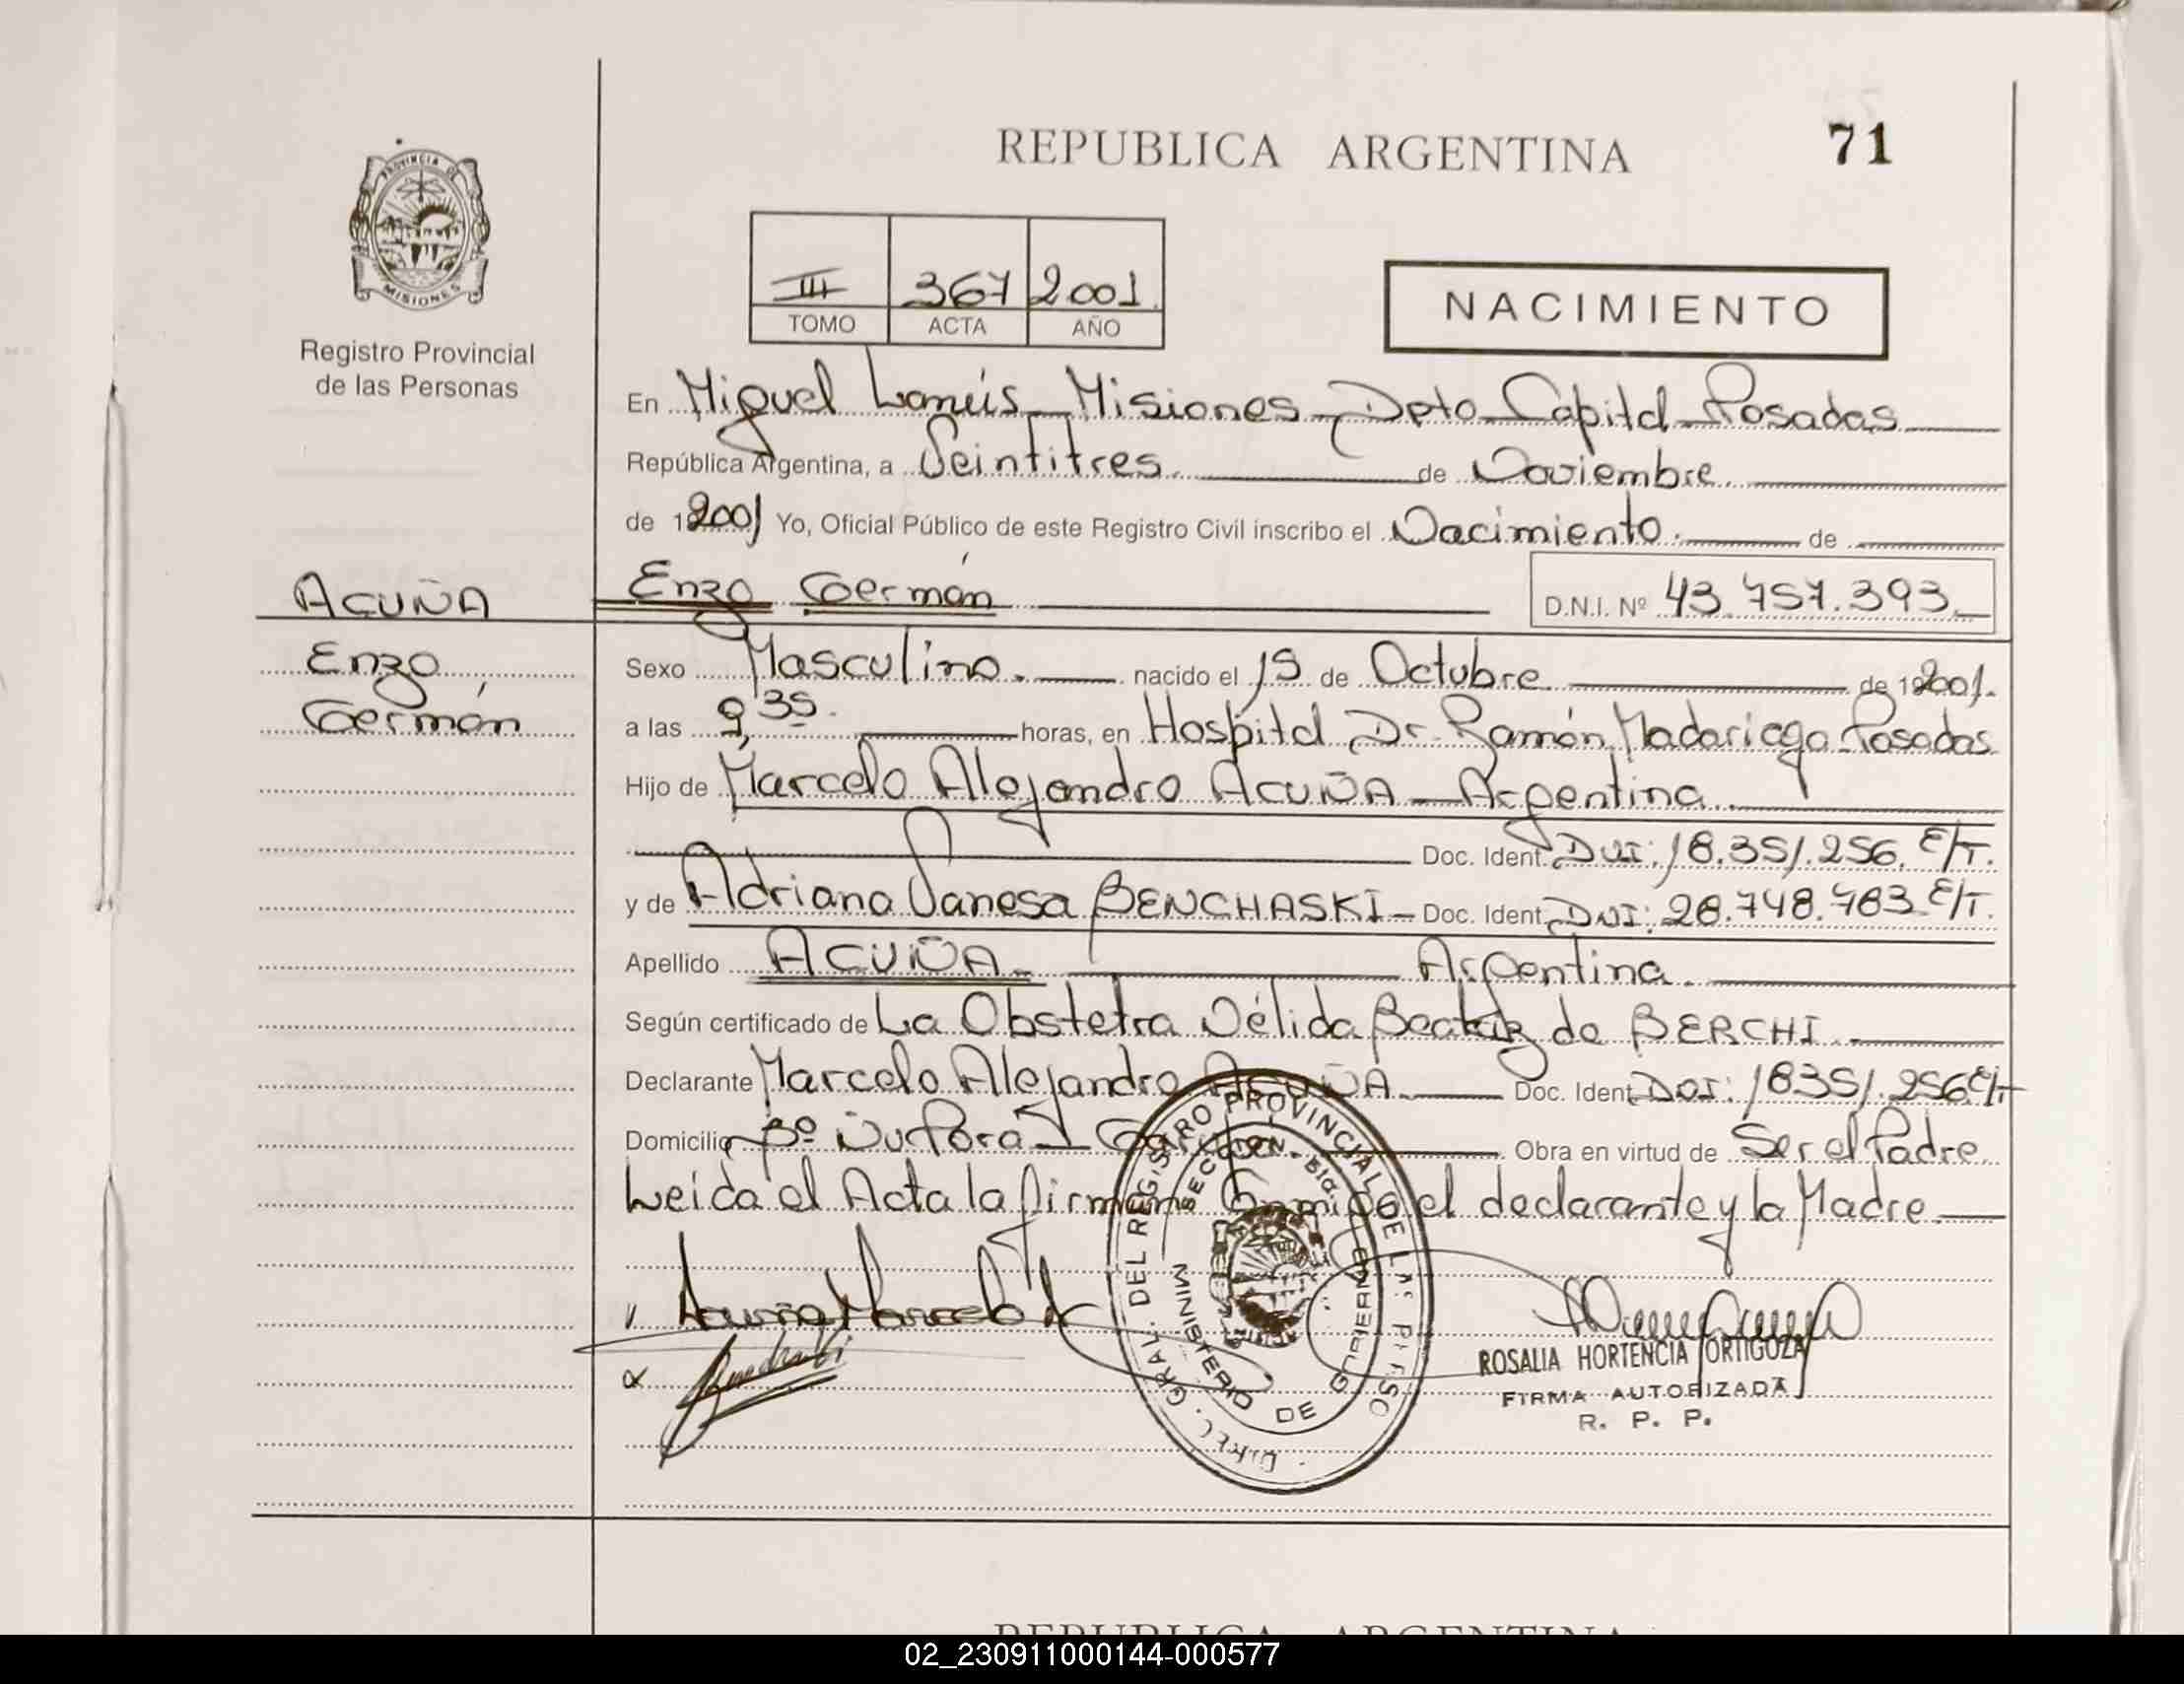 REPUBLICA ARGENTINA
71
PROVINCIA DE
MISIONES
Registro Provincial
de las Personas
III 367 2001
TOMO ACTA AÑO
NACIMIENTO
En Miguel Lanús Misiones Dpto Capital Posadas
República Argentina, a Veintitres de Noviembre
de 2001 Yo, Oficial Público de este Registro Civil inscribo el Nacimiento de
ACUÑA
Enzo Germán D.N.I. Nº 43.757.393
Enzo
Germán
Sexo Masculino. nacido el 15 de Octubre de 2001.
a las 9,35 horas, en Hospital Dr Ramón Madariaga Posadas
Hijo de Marcelo Alejandro ACUÑA Argentina
Doc. Ident. DNI: 18.351.256. E/T.
y de Adriana Vanesa BENCHASKI Doc. Ident. DNI: 28.748.783 E/T.
Apellido ACUÑA Argentina
Según certificado de La Obstetra Nélida Beatriz de BERCHI
Declarante Marcelo Alejandro ACUÑA Doc. Ident. DNI: 18351.256 E/T
Domicilio Bº Ñu Porá Obra en virtud de Ser el Padre
Leida el Acta la firman Conmigo el declarante y la Madre
Acuña Marcelo A
DIREC. GRAL. DEL REGISTRO PROVINCIAL DE
MINISTERIO DE GOBIERNO
ROSALIA HORTENCIA ORTIGOZA
FIRMA AUTORIZADA
R. P. P.
REPUBLICA ARGENTINA
02_230911000144-000577